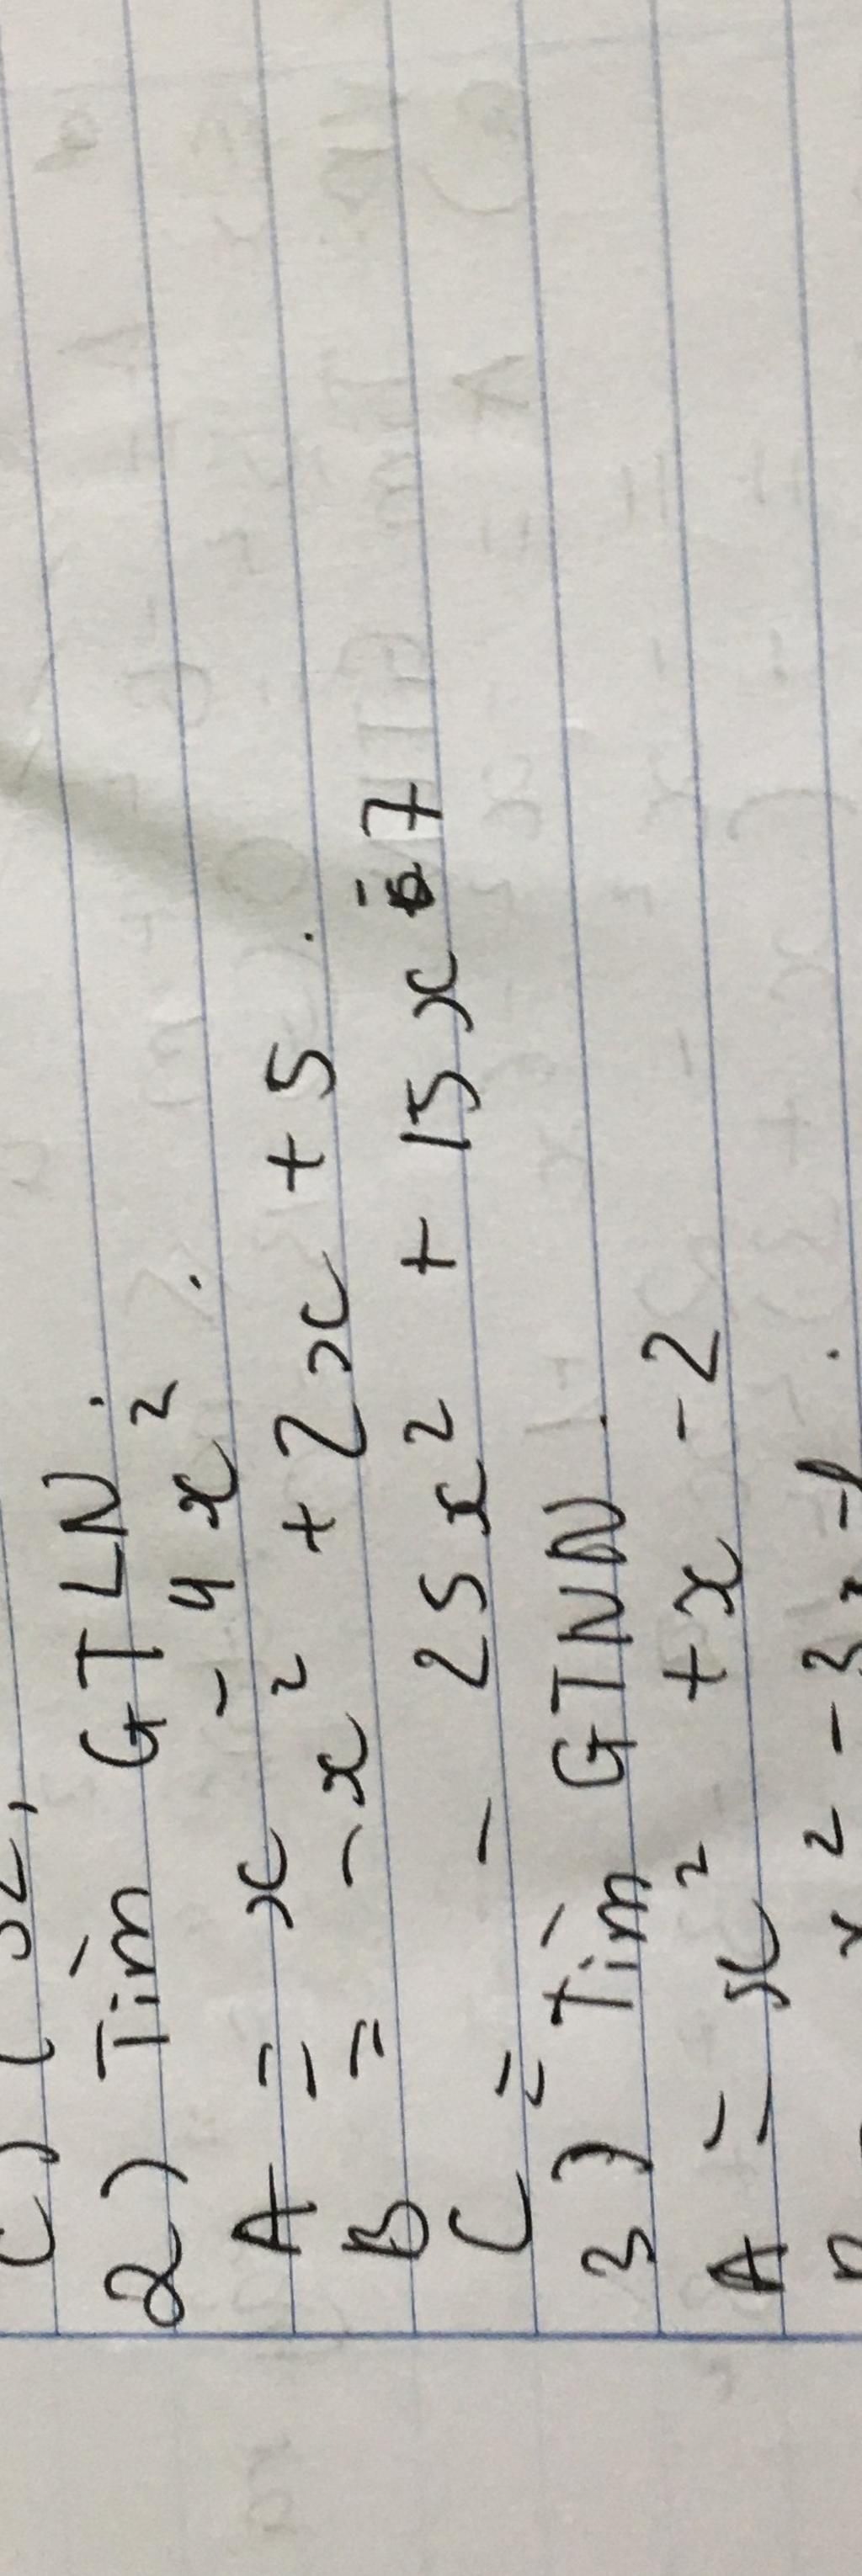 2) Tìm GTLN.
A = x - 4x².
B = -x² + 2x + 5.
C = - 25x² + 15x - 7
3) Tìm GTNN.
A = x² + x - 2
x² - 3x